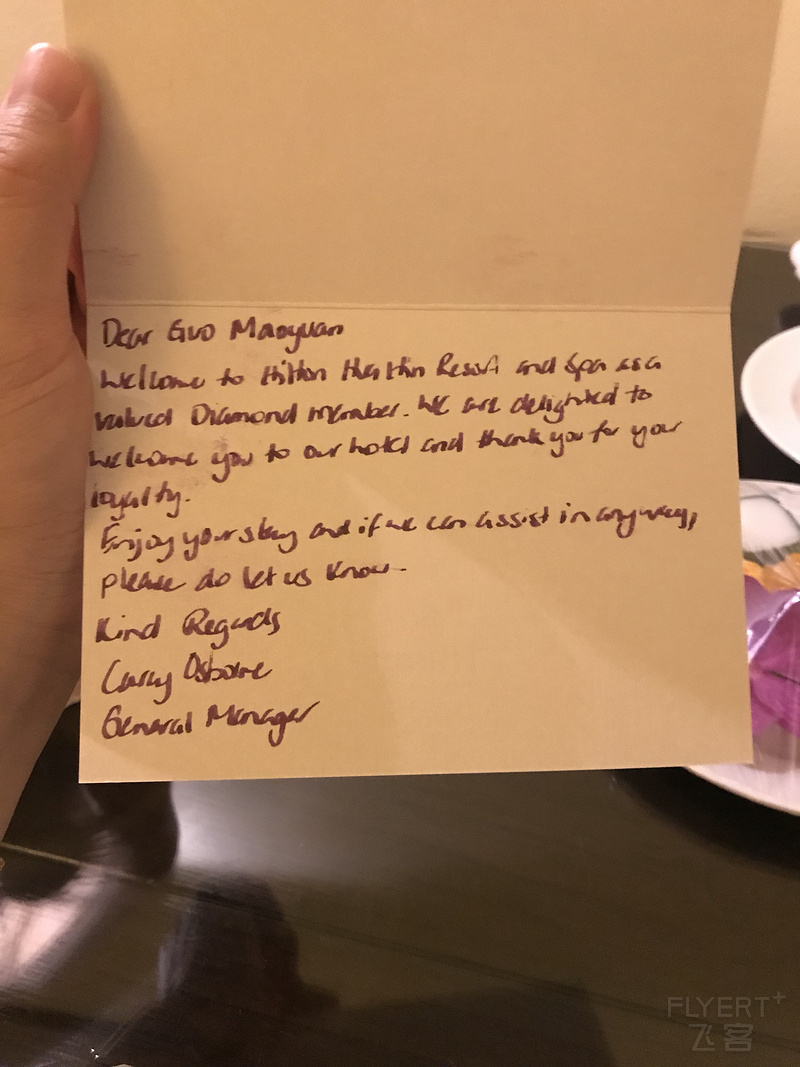 Dear Guo Maoyuan
Welcome to Hilton Hua Hin Resort and Spa as a
valued Diamond member. We are delighted to
welcome you to our hotel and thank you for your
loyalty.
Enjoy your stay and if we can assist in anyway,
please do let us know.
Kind Regards
Osborne
General Manager
FLYERT+
飞客